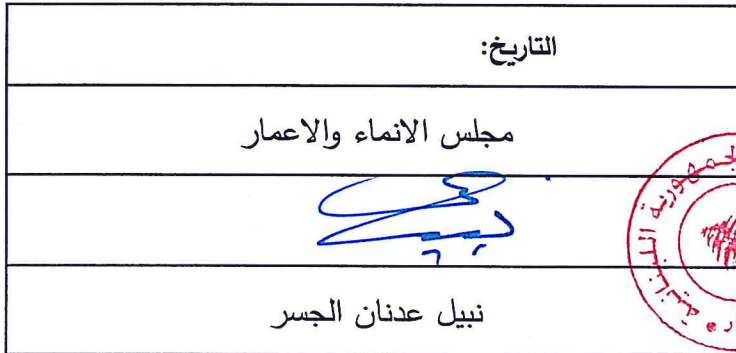 التاريخ:
مجلس الانماء والاعمار
نبيل عدنان الجسر
الجمهورية اللبنانية